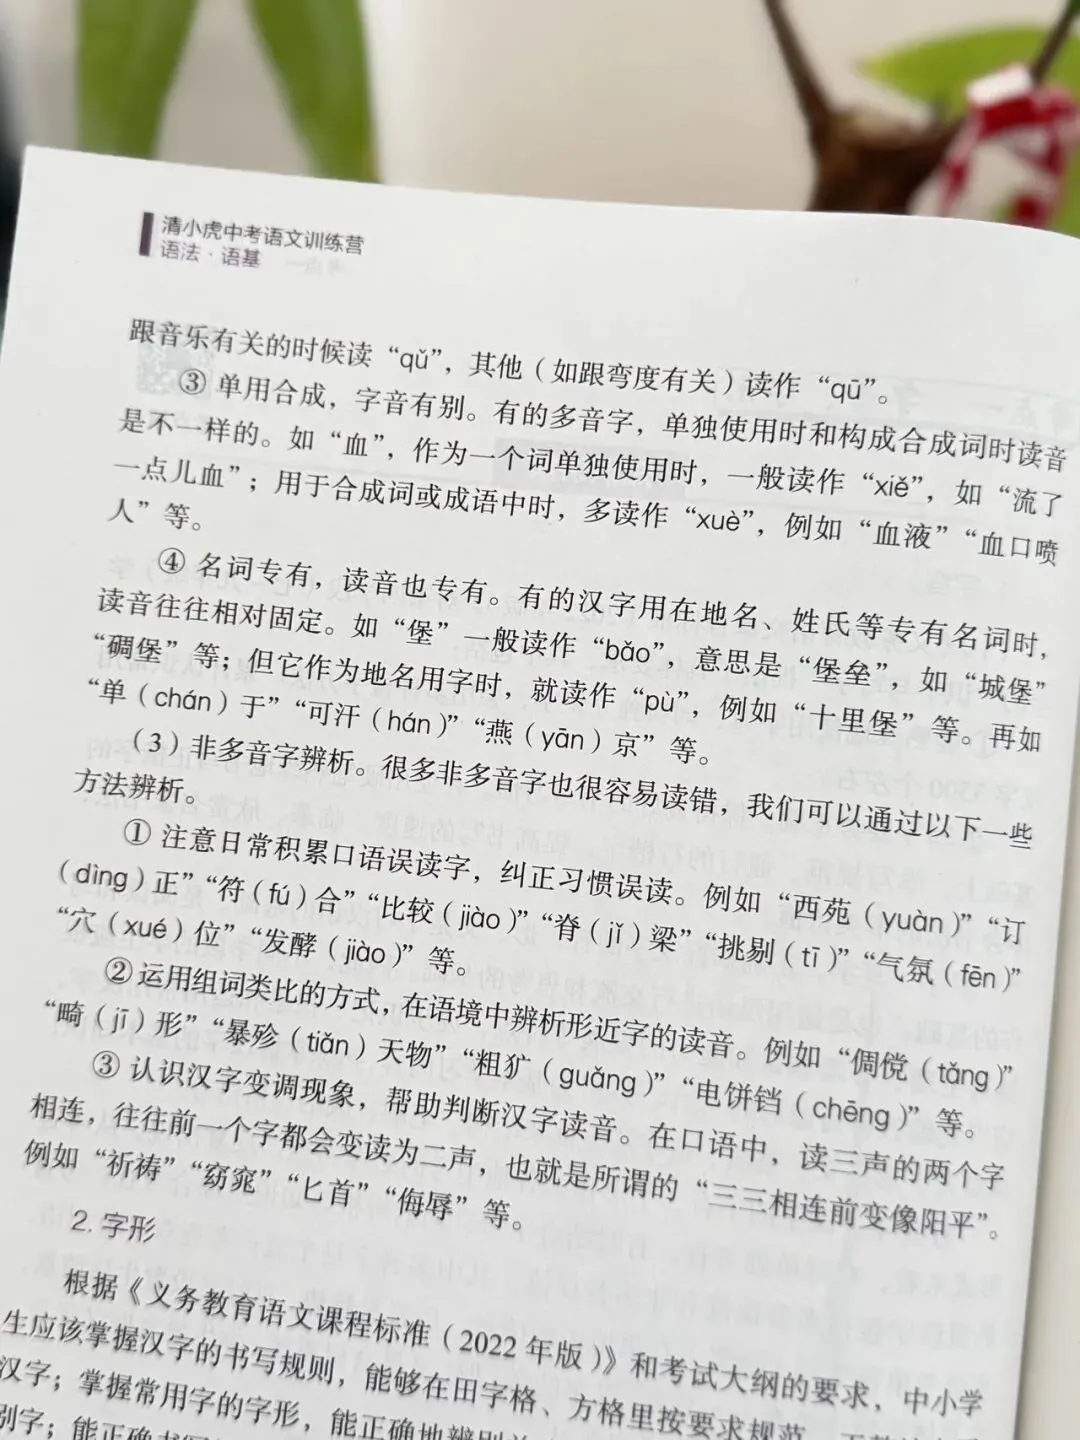 清小虎中考语文训练营
语法·语基
跟音乐有关的时候读“qǔ”，其他（如跟弯度有关）读作“qū”。
③ 单用合成，字音有别。有的多音字，单独使用时和构成合成词时读音
是不一样的。如“血”，作为一个词单独使用时，一般读作“xiě”，如“流了
一点儿血”；用于合成词或成语中时，多读作“xuè”，例如“血液”“血口喷
人”等。
④ 名词专有，读音也专有。有的汉字用在地名、姓氏等专有名词时，
读音往往相对固定。如“堡”一般读作“bǎo”，意思是“堡垒”，如“城堡”
“碉堡”等；但它作为地名用字时，就读作“pù”，例如“十里堡”等。再如
“单（chán）于”“可汗（hán）”“燕（yān）京”等。
（3）非多音字辨析。很多非多音字也很容易读错，我们可以通过以下一些
方法辨析。
① 注意日常积累口语误读字，纠正习惯误读。例如“西苑（yuàn）”“订
（dìng）正”“符（fú）合”“比较（jiào）”“脊（jǐ）梁”“挑剔（tī）”“气氛（fēn）”
“穴（xué）位”“发酵（jiào）”等。
② 运用组词类比的方式，在语境中辨析形近字的读音。例如“倜傥（tǎng）”
“畸（jī）形”“暴殄（tiǎn）天物”“粗犷（guǎng）”“电饼铛（chēng）”等。
③ 认识汉字变调现象，帮助判断汉字读音。在口语中，读三声的两个字
相连，往往前一个字都会变读为二声，也就是所谓的“三三相连前变像阳平”。
例如“祈祷”“窈窕”“匕首”“侮辱”等。
2. 字形
根据《义务教育语文课程标准（2022年版）》和考试大纲的要求，中小学
生应该掌握汉字的书写规则，能够在田字格、方格里按要求规范
汉字；掌握常用字的字形，能正确地辨别
别字；能正确书写